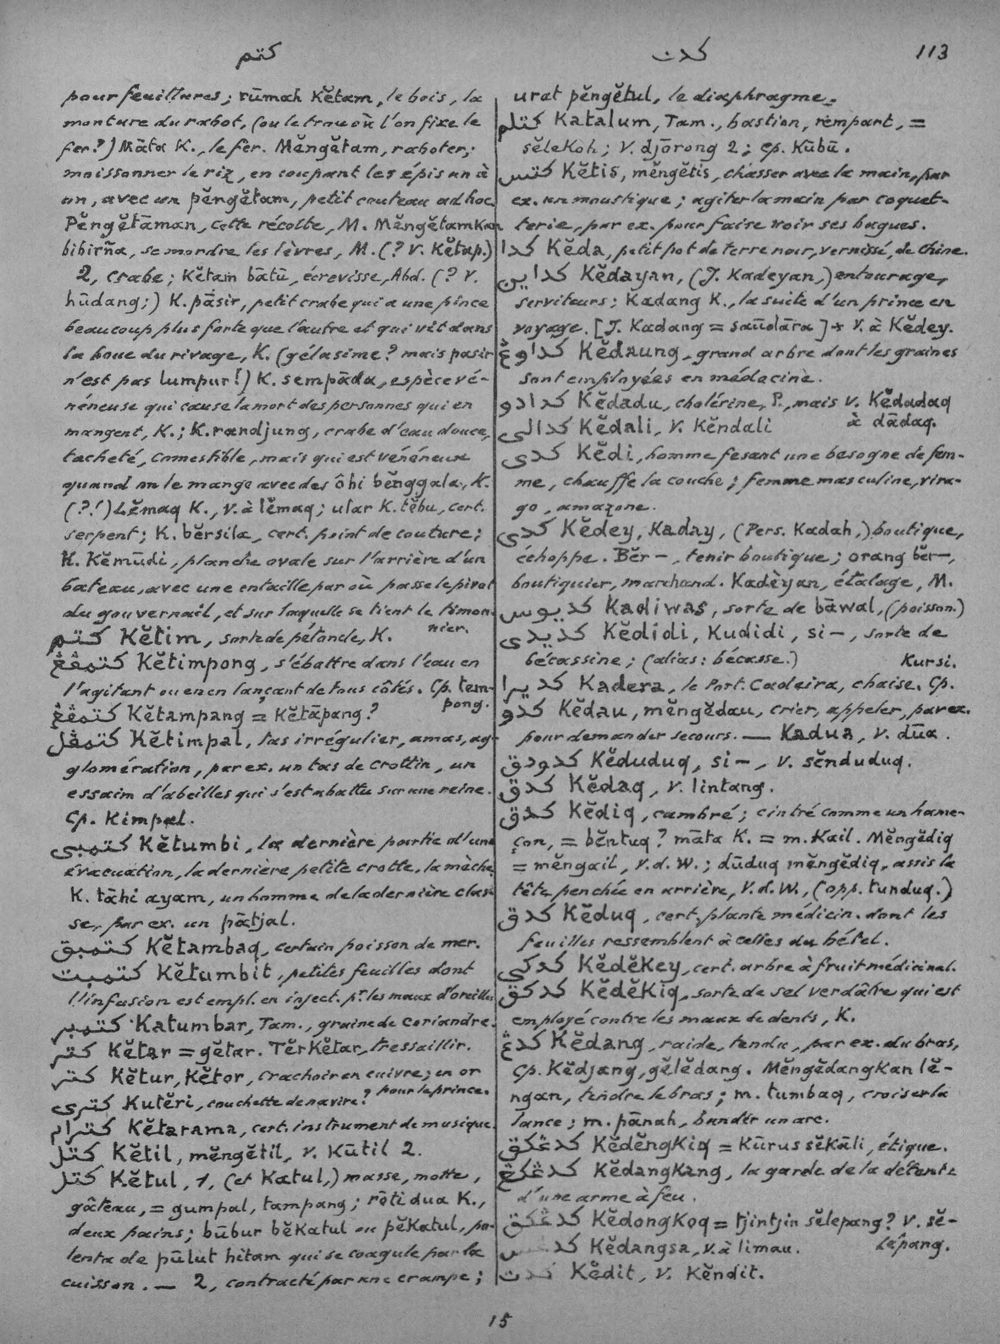 كتم
كدت
113
pour feuillures; rūmah Kĕtam, le bois, la
monture du rabot, (ou le trou où l'on fixe le
fer?) Māta K., le fer. Mĕngĕtam, raboter;
moissonner le riz, en coupant les épis un à
un, avec un pĕngĕtam, petit couteau ad hoc.
Pĕngĕtāman, cette récolte, M. MĕngĕtamKan
bibirña, se mordre les lèvres, M. (? v. Kĕtap.)
2, crabe; Kĕtam bātū, écrevisse, Abd. (? v.
hūdang;) K. pāsir, petit crabe qui a une pince
beaucoup plus forte que l'autre et qui vit dans
la boue du rivage, K. (gélasime? mais pasir
n'est pas lumpur!) K. sempāda, espèce vé-
néneuse qui cause la mort des personnes qui en
mangent, K.; K. randjung, crabe d'eau douce,
tacheté, comestible, mais qui est vénéneux
quand on le mange avec des ôhi bĕnggala, K.
(?!) Lĕmaq K., v. à lĕmaq; ular K. tĕbu, cert.
serpent; K. bĕrsila, cert. point de couture;
K. Kĕmūdi, planche ovale sur l'arrière d'un
bateau, avec une entaille par où passe le pivot
du gouvernail, et sur laquelle se tient le timon-
nier.
كتم Kĕtim, sorte de pétoncle, K.
كتمڤڠ Kĕtimpong, s'ébattre dans l'eau en
l'agitant ou en en lançant de tous côtés. Cp. tem-
pong.
كتمڤڠ Kĕtampang = Kĕtāpang?
كتمڤل Kĕtimpal, tas irrégulier, amas, ag-
glomération, par ex. un tas de crottin, un
essaim d'abeilles qui s'est abattu sur une reine.
Cp. Kimpal.
كتمبي Kĕtumbi, la dernière partie d'une
évacuation, la dernière petite crotte, la mèche,
K. tāhi ayam, un homme de la dernière clas-
se, par ex. un pātjal.
كتمبق Kĕtambaq, certain poisson de mer.
كتمبت Kĕtumbit, petites feuilles dont
l'infusion est empl. en inject. pr. les maux d'oreilles
كتمبر Katumbar, Tam., graine de coriandre.
كتر Kĕtar = gĕtar. TĕrKĕtar, tressaillir.
كتر Kĕtur, Kĕtor, crachoir en cuivre; en or
pour le prince.
كتري Kutĕri, couchette de navire?
كترام Kĕtarama, cert. instrument de musique.
كتل Kĕtil, mĕngĕtil, v. Kūtil 2.
كتل Kĕtul, 1, (et Katul,) masse, motte,
gâteau, = gumpal, tampang; rōti dua K.,
deux pains; būbur bĕKatul ou pĕKatul, po-
lenta de pūlut hitam qui se coagule par la
cuisson. — 2, contracté par une crampe;
urat pĕngĕtul, le diaphragme.
كتلم Katalum, Tam., bastion, rempart, =
sĕleKoh; v. djōrong 2; cp. Kūbū.
كتس Kĕtis, mĕngĕtis, chasser avec la main, par
ex. un moustique; agiter la main par coquet-
terie, par ex. pour faire voir ses bagues.
كدا Kĕda, petit pot de terre noir, vernissé, de Chine.
كداين Kĕdayan, (J. Kadeyan,) entourage,
serviteurs; Kadang K., la suite d'un prince en
voyage. [J. Kadang = saūdāra] + v. à Kĕdey.
كداوڠ Kĕdaung, grand arbre dont les graines
sont employées en médecine.
كدادو Kĕdadu, cholérine, P., mais v. Kĕdadaq
à dādaq.
كدالي Kĕdali, v. Kĕndali
كدي Kĕdi, homme fesant une besogne de fem-
me, chauffe la couche; femme masculine, vira-
go, amazone.
كدي Kĕdey, Kaday, (Pers. Kadah,) boutique,
échoppe. Bĕr—, tenir boutique; orang bĕr—,
boutiquier, marchand. Kadèyan, étalage, M.
كديوس Kadiwas, sorte de bāwal, (poisson.)
كديدي Kĕdidi, Kudidi, si—, sorte de
bécassine; (alias: bécasse.)
Kursi.
كديرا Kadera, le Port. Cadeira, chaise. Cp.
كدو Kĕdau, mĕngĕdau, crier, appeler, par ex.
pour demander secours. — Kadua, v. dūa.
كدودق Kĕduduq, si—, v. sĕnduduq.
كدق Kĕdaq, v. lintang.
كدق Kĕdiq, cambré; cintré comme un hame-
çon, = bĕntuq? māta K. = m. Kail. Mĕngĕdiq
= mĕngail, v. d. W.; dūduq mĕngĕdiq, assis la
tête penchée en arrière, V. d. W., (opp. tunduq.)
كدق Kĕduq, cert. plante médicin. dont les
feuilles ressemblent à celles du bétel.
كدكي KĕdĕKey, cert. arbre à fruit médicinal.
كدكق KĕdĕKiq, sorte de sel verdâtre qui est
employé contre les maux de dents, K.
كدڠ Kĕdang, raide, tendu, par ex. du bras,
Cp. Kĕdjang, gĕlĕdang. MĕngĕdangKan lĕ-
ngan, tendre le bras; m. tumbaq, croiser la
lance; m. pānah, bander un arc.
كدڠكق KĕdĕngKiq = Kūrus sĕKāli, étique.
كدڠكڠ KĕdangKang, la garde de la détente
d'une arme à feu.
كدڠكق KĕdongKoq = tjintjin sĕlepang? v. sĕ-
lépang.
كدڠس Kĕdangsa, v. à limau.
كدت Kĕdit, v. Kĕndit.
15